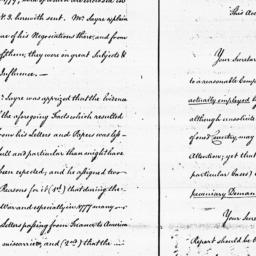 N. 3. herewith sent. Mr. Sayre explain
of his Negotiations there; and from
of them; they were in great Subjects &
Influence. —
Sayre was apprized that the Evidence
of the foregoing Facts which resulted
from his Letters and Papers was less
full and particular than might have
been expected; and he assigned two
Reasons for it (1st.) that during the
War and especially in 1777 many
Letters passing from France to America
miscarried; and (2nd.) that the
This Acc
Your Secretar
to a reasonable Compen
actually employed
although unsolicite
of our Country, may
Attention; yet that
particular Cases)
pecuniary Deman
Your Secre
Report should be